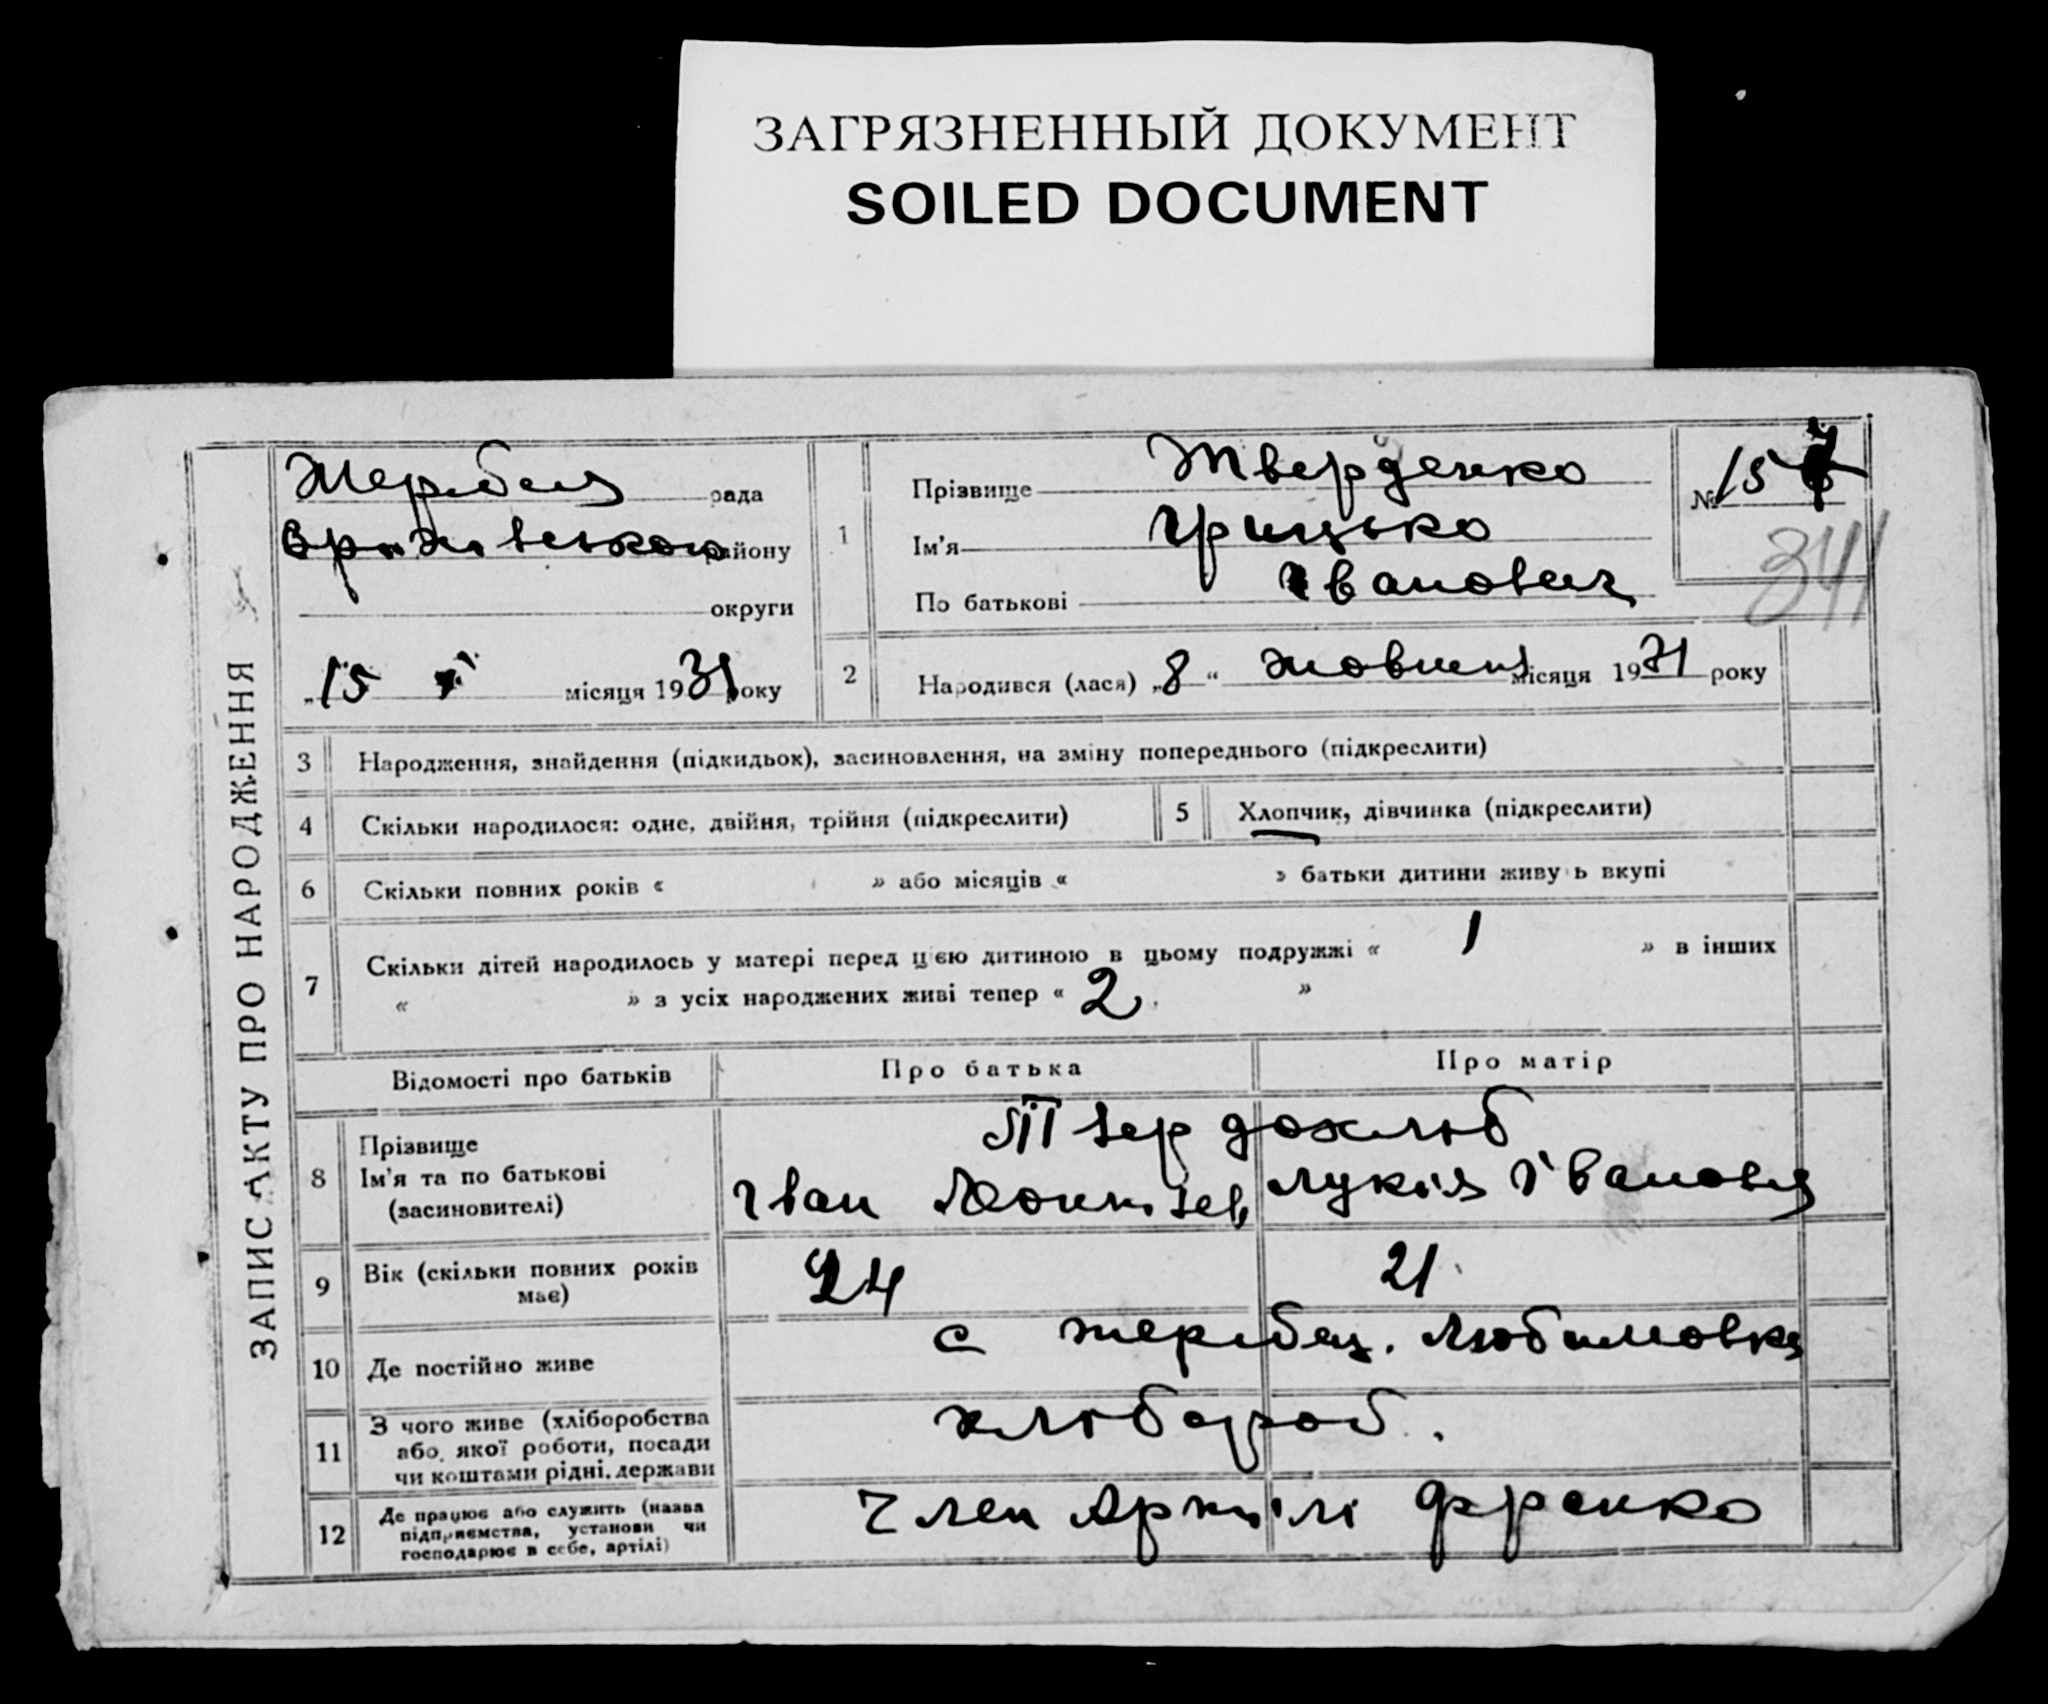 ЗАГРЯЗНЕННЫЙ ДОКУМЕНТ
SOILED DOCUMENT
ЗАПИС АКТУ ПРО НАРОДЖЕННЯ
рада
району
округи
„15 місяця 1931 року
1
Прізвище Тверденко
Ім'я Грицько
По батькові Іванович
№ 157
341
2
Народився (лася) „8“ жовтня місяця 1931 року
3 Народження, знайдення (підкидьок), засиновлення, на зміну попереднього (підкреслити)
4 Скільки народилося: одне, двійня, трійня (підкреслити)
5 Хлопчик, дівчинка (підкреслити)
6 Скільки повних років « » або місяців « » батьки дитини живу ь вкупі
7 Скільки дітей народилось у матері перед цією дитиною в цьому подружжі « 1 » в інших
« » з усіх народжених живі тепер « 2 »
Відомості про батьків
Про батька
Про матір
8 Прізвище
Ім'я та по батькові
(засиновителі)
Твердохліб
Іван
Лукія Іванова
9 Вік (скільки повних років
має)
24
21
10 Де постійно живе
с Жеребец. Любимовка
11 З чого живе (хліборобства
або якої роботи, посади
чи коштами рідні, держави
хлібороб.
12 Де працює або служить (назва
підприємства, установи чи
господарює в себе, артілі)
Член Артілі Франко